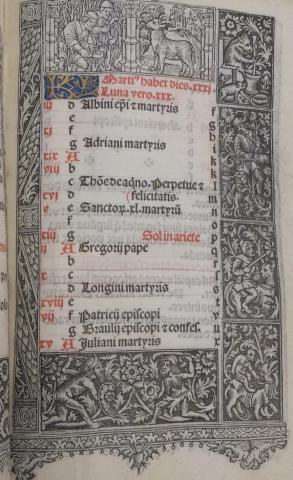 KL Martiꝰ habet dies .xxxj.
Luna vero .xxx.
iii d Albini epi et martyris
e f
f g
g Adriani martyris h
xix A i
viii b k
c Tho͂e de aq̃no. Perpetue et l
xvi d felicitatis. m
v e Sanctoꝝ .xl. martyrũ n
f o
xiii g Sol in ariete p
ii A Gregorij pape q
b r
c
d Longini martyris
xviii e t
vii f Patricij episcopi v
g Braulij episcopi et confes. u
xv A Juliani martyris x